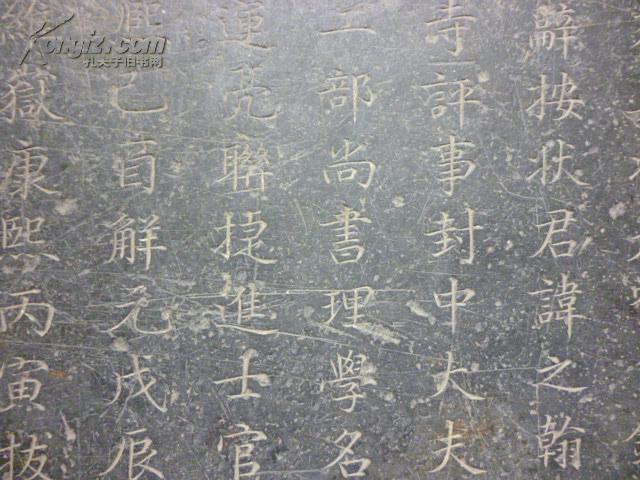 辭按狀君諱之翰
寺評事封中大夫
工部尚書理學名
運亮聯捷進士官
熙己酉解元戊辰
嶽康熙丙寅拔
Kongfz.com
孔夫子旧书网